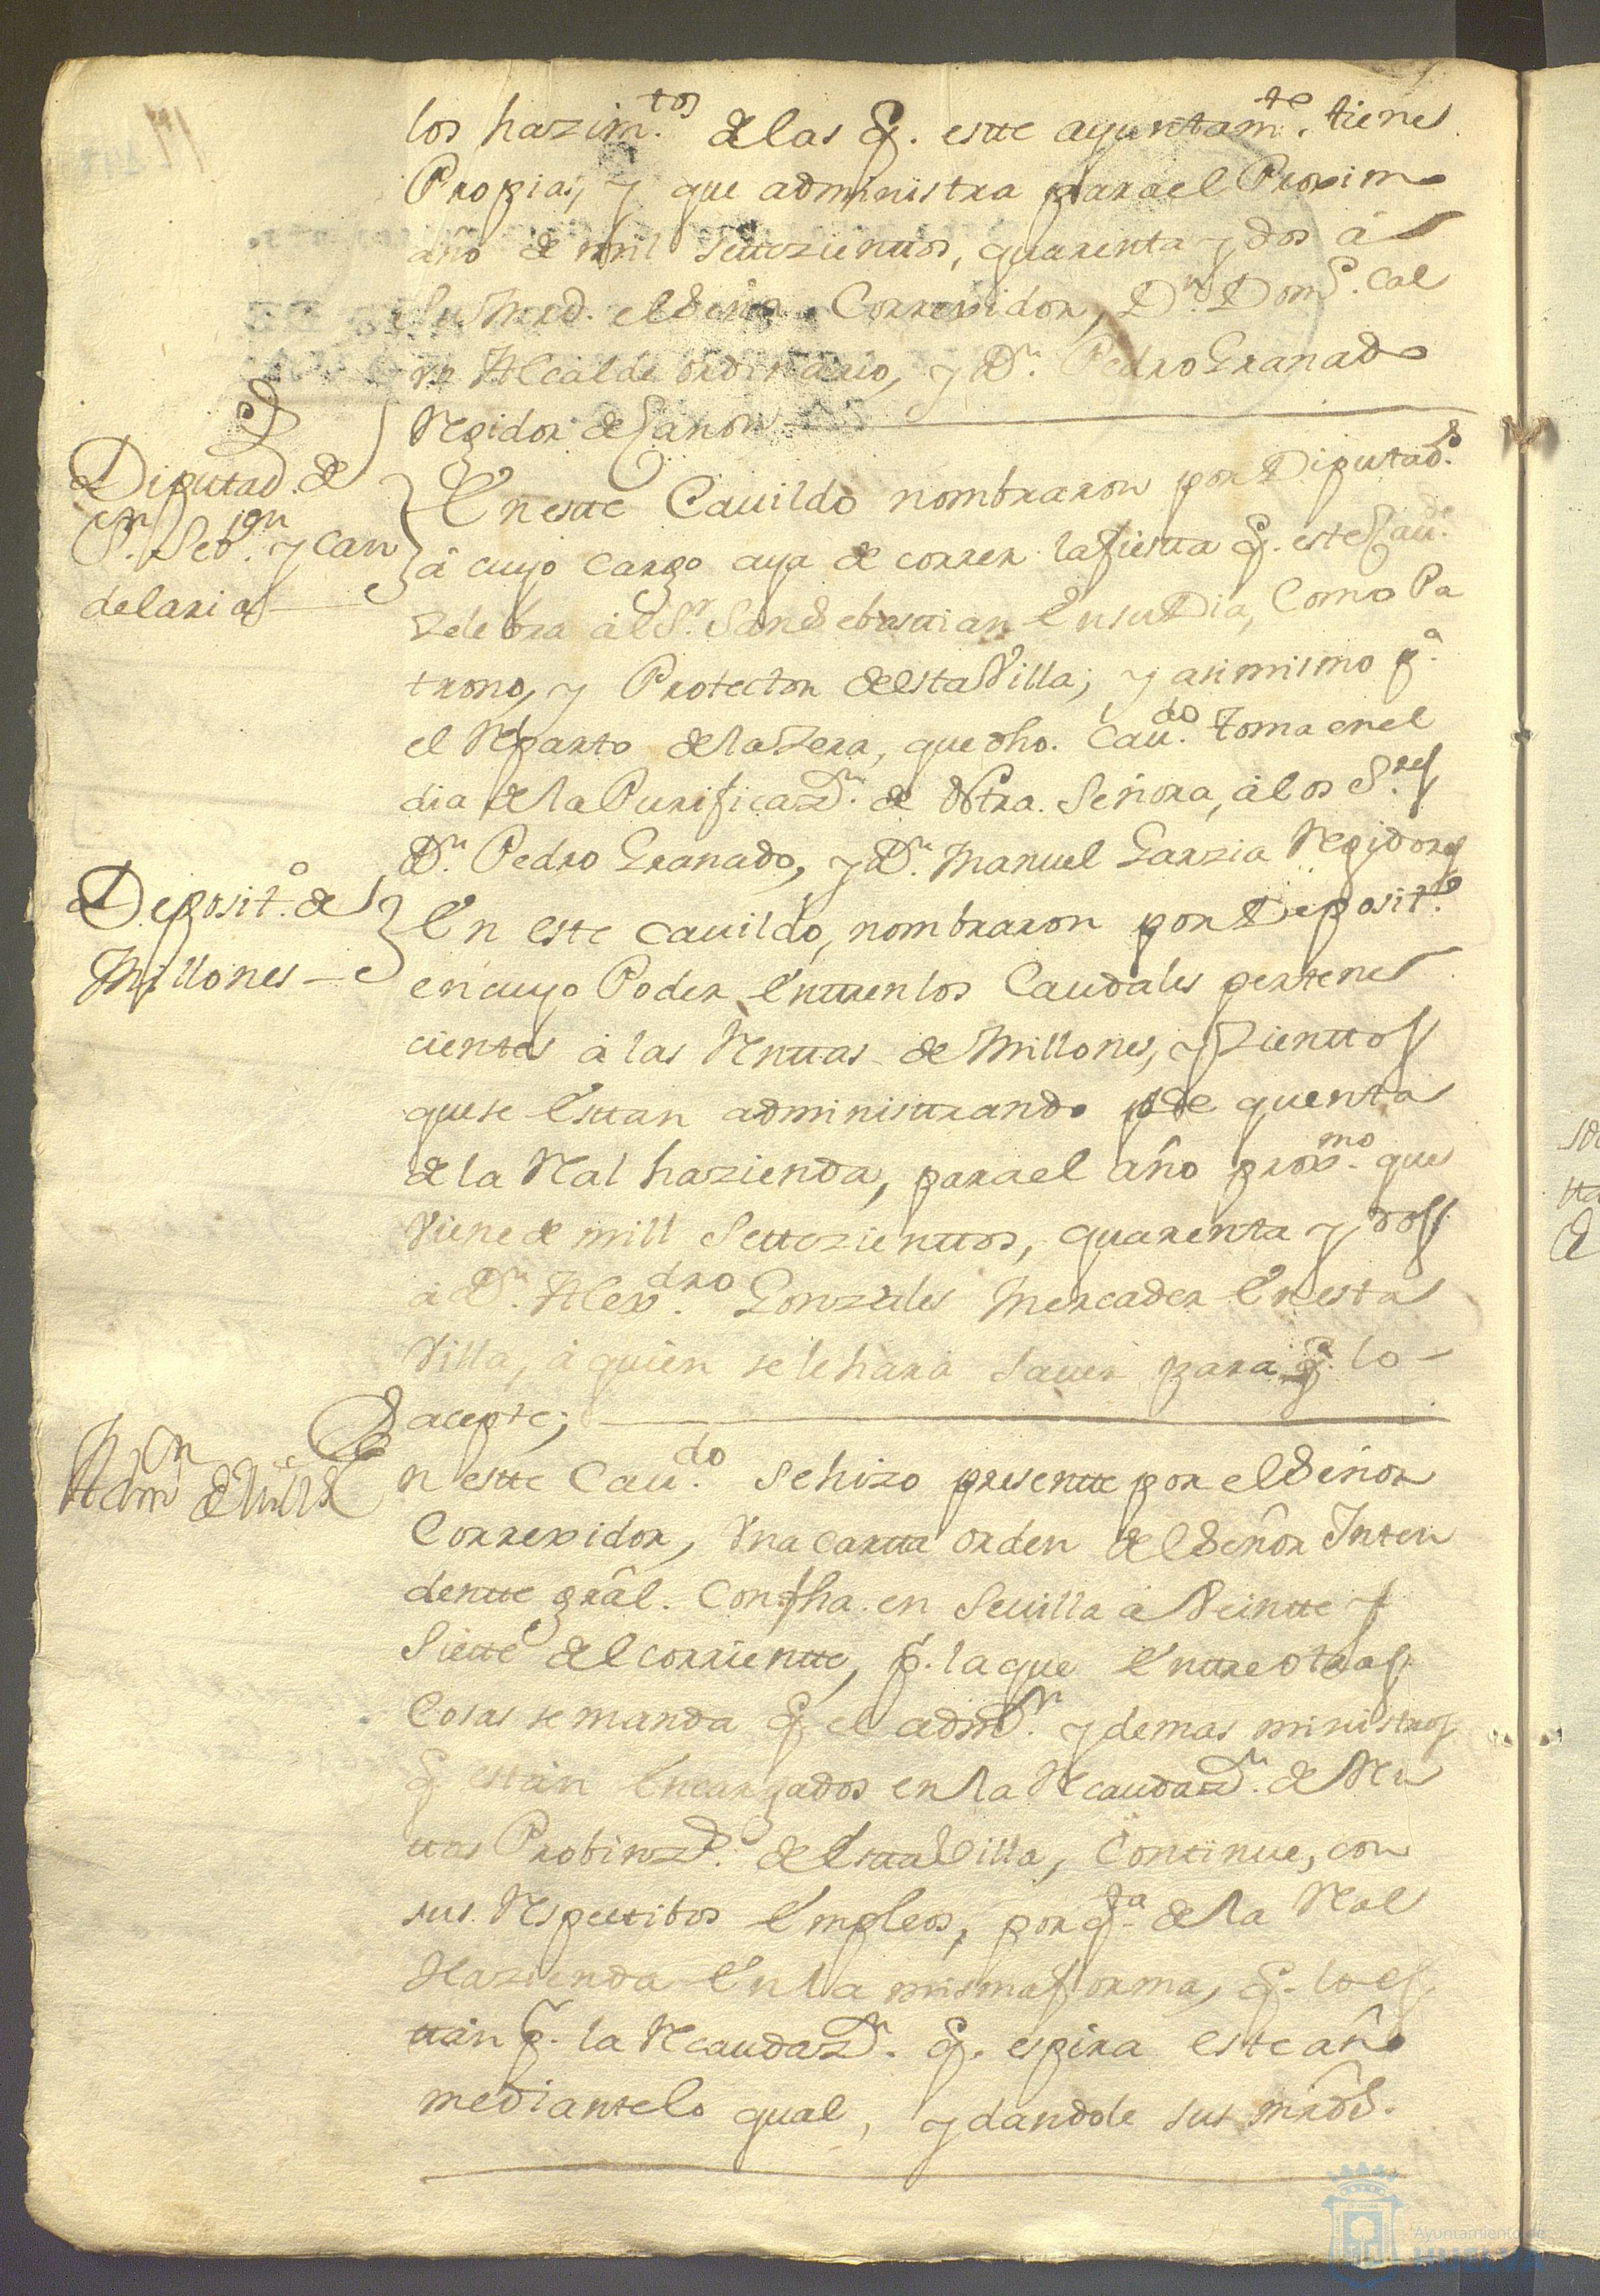 los hazim.tos de las q. este ayuntam.te tiene
Propias, y que administra para el Proximo
año de mil settezienttos, quarenta y dos á
Su Mrd. el Señor Correxidor, Dn. Domo. Cal
vo Alcalde ordinario, y Dn. Pedro Granado
Regidor de Canon
Diputad. de
Sn. Seb.ian y Can
delaria
En este Cauildo nombraron por Diputad.s
á cuyo cargo aya de correr la fiesta q. este Cau.do
Zelebra àl Sr. San Sebasttian En su Dia, Como Pa
trono, y Protector de esta Villa; y asimismo p.a
el Reparto de la Zera, que dho. Cau.do toma en el
dia de la Purificaz.n de Ntra. Señora, à los S.res
Dn. Pedro Granado, y Dn. Manuel Garzia Regidores
Deposit.o de
Millones
En este Cauildo, nombraron por Deposit.o
en cuyo Poder Entren los Caudales pertene
cientes à las Renttas de Millones, y Zienttos
que se Esttan administtrando de quenta
de la Real hazienda, para el año prox.mo que
Viene de mill Settezienttos, quarenta y dos
à Dn. Alex.dro Gonzales Mercader En esta
Villa, à quien se le hará sauer para q. lo
acepte;
Adm.on de Mill.s
En este Cau.do se hizo presentte por el Señor
Correxidor, Vna cartta orden del Señor Inten
dentte grâl. Con fha. en Seuilla à Veintte y
Siette del corrientte, p. la que Enttre otras
Cosas se manda q. el adm.or y demas ministros
q. están Encargados en la Recaudaz.n de Ren
ttas Probinz.s de Estta Villa, Continue, con
sus Respecttibos Empleos, por q.ta de la Real
Hazienda En la misma forma, q. lo es
ttán p. la Recaudaz.n q. espira este año
mediante lo qual, y dandole sus mrds.
Ayuntamiento de
HUELVA